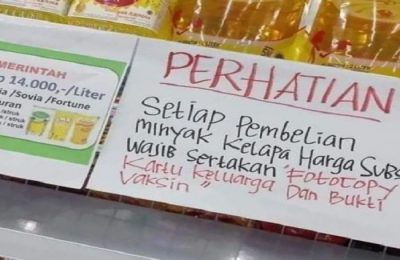 MERINTAH
14.000,-/Liter
/Sovia/Fortune
uran
PERHATIAN
Setiap Pembelian
Minyak Kelapa Harga Subs
Wajib Sertakan "Fotocopy
Kartu Keluarga Dan Bukti
Vaksin"